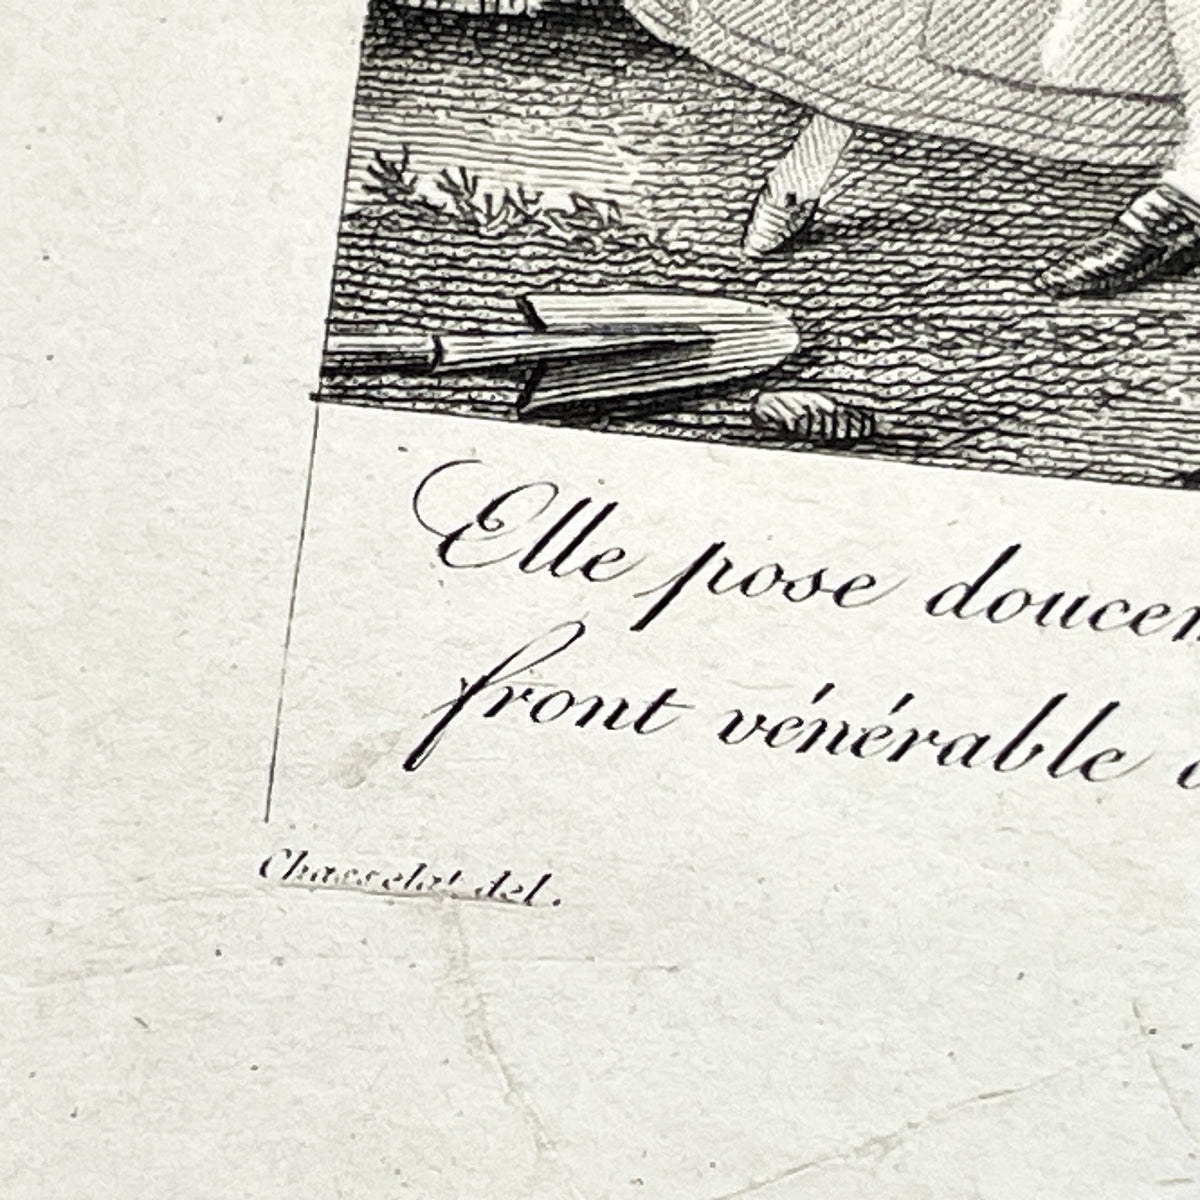 Elle pose doucem
front vénérable d
Chasselat del.